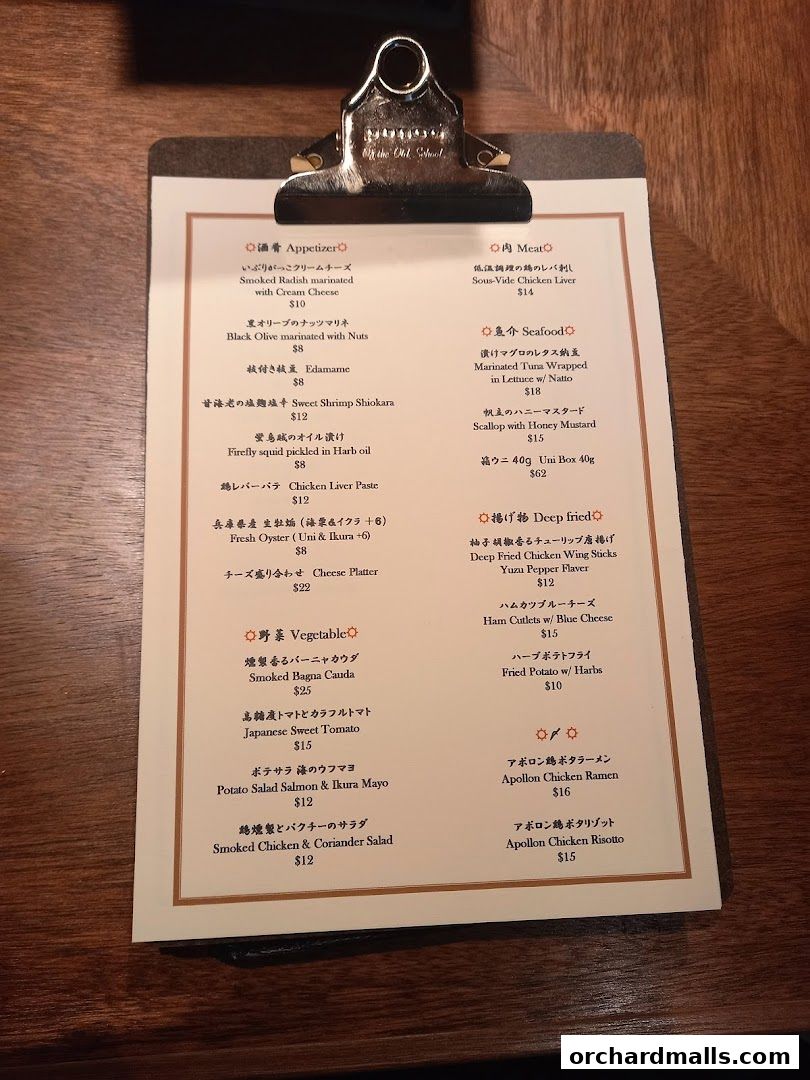 Of the Old School
酒肴 Appetizer
いぶりがっこクリームチーズ
Smoked Radish marinated
with Cream Cheese
$10
黒オリーブのナッツマリネ
Black Olive marinated with Nuts
$8
枝付き枝豆 Edamame
$8
甘海老の塩麹塩辛 Sweet Shrimp Shiokara
$12
蛍烏賊のオイル漬け
Firefly squid pickled in Harb oil
$8
鶏レバーパテ Chicken Liver Paste
$12
兵庫県産 生牡蠣 (海栗&イクラ +6)
Fresh Oyster ( Uni & Ikura +6)
$8
チーズ盛り合わせ Cheese Platter
$22
野菜 Vegetable
燻製香るバーニャカウダ
Smoked Bagna Cauda
$25
高糖度トマトとカラフルトマト
Japanese Sweet Tomato
$15
ポテサラ 海のウフマヨ
Potato Salad Salmon & Ikura Mayo
$12
鶏燻製とパクチーのサラダ
Smoked Chicken & Coriander Salad
$12
肉 Meat
低温調理の鶏のレバ刺し
Sous-Vide Chicken Liver
$14
魚介 Seafood
漬けマグロのレタス納豆
Marinated Tuna Wrapped
in Lettuce w/ Natto
$18
帆立のハニーマスタード
Scallop with Honey Mustard
$15
箱ウニ 40g Uni Box 40g
$62
揚げ物 Deep fried
柚子胡椒香るチューリップ唐揚げ
Deep Fried Chicken Wing Sticks
Yuzu Pepper Flaver
$12
ハムカツブルーチーズ
Ham Cutlets w/ Blue Cheese
$15
ハーブポテトフライ
Fried Potato w/ Harbs
$10
〆
アポロン鶏ポタラーメン
Apollon Chicken Ramen
$16
アポロン鶏ポタリゾット
Apollon Chicken Risotto
$15
orchardmalls.com